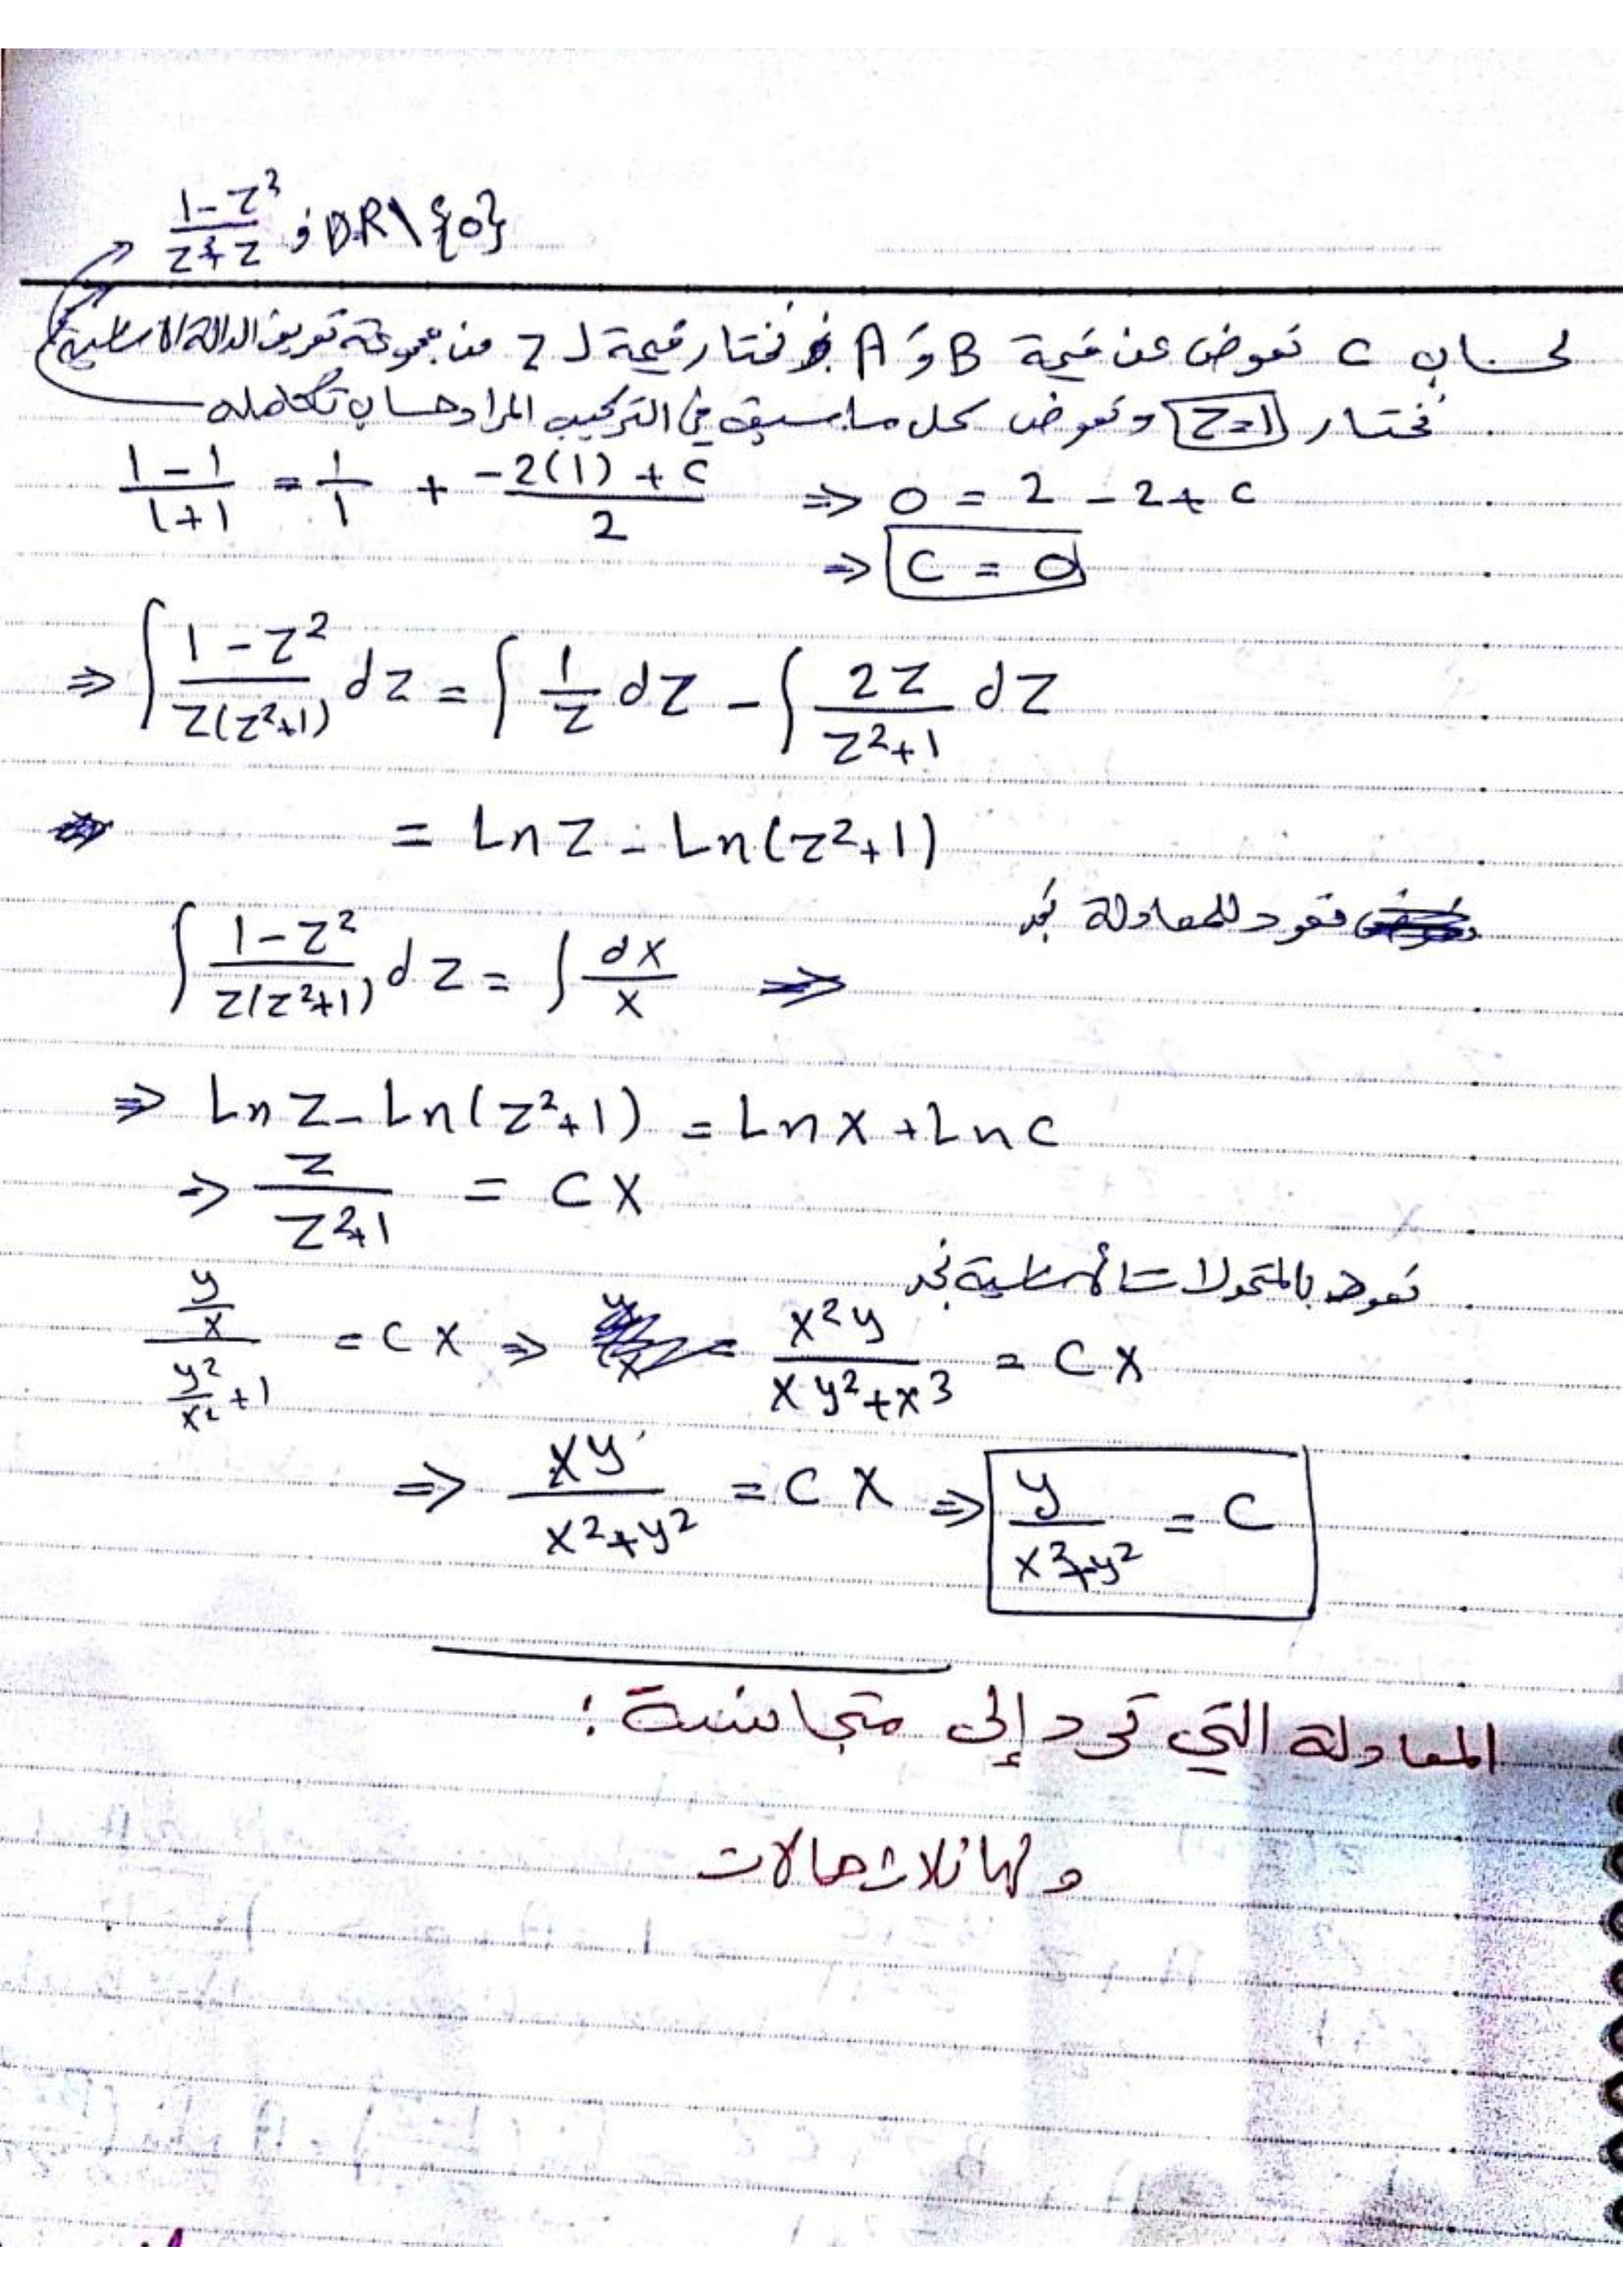 (1-z²)/(z³+z) ; D.R\{0}
لحساب C نعوض عن قيمة B و A نختار قيمة لـ z من مجموعة تعريف الدالة الأساسية
نختار z=1 ونعوض بكل ما سبق في التركيب المراد حساب تكامله
(1-1)/(1+1) = 1/1 + (-2(1)+C)/2 ⇒ 0 = 2 - 2 + C
⇒ C = 0
⇒ ∫ (1-z²)/(z(z²+1)) dz = ∫ 1/z dz - ∫ 2z/(z²+1) dz
= Ln z - Ln(z²+1)
نعود للمعادلة نجد
∫ (1-z²)/(z(z²+1)) dz = ∫ dx/x ⇒
⇒ Ln z - Ln(z²+1) = Ln x + Ln c
⇒ z/(z²+1) = c x
نعوض بالمتحولات الأساسية نجد
(y/x)/(y²/x²+1) = c x ⇒ x²y/(xy²+x³) = c x
⇒ xy/(x²+y²) = c x ⇒ y/(x²+y²) = c
المعادلة التي ترد إلى متجانسة :
ولها ثلاث حالات